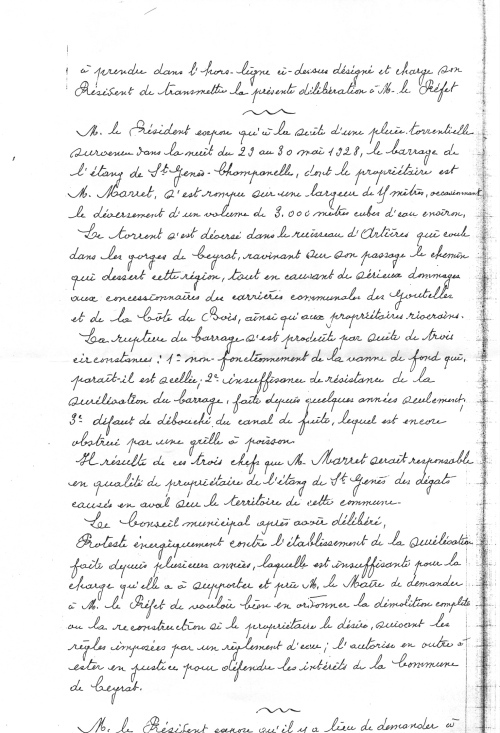 à prendre dans l'hors-ligne ci-dessus désigné et charge son
Président de transmettre la présente délibération à M. le Préfet
M. le Président expose qu'à la suite d'une pluie torrentielle
survenue dans la nuit du 29 au 30 mai 1928, le barrage de
l'étang de St-Genès-Champanelle, dont le propriétaire est
M. Marret, s'est rompu sur une largeur de mètres, occasionnant
le déversement d'un volume de 3.000 mètres cubes d'eau environ.
Le torrent s'est déversé dans le ruisseau d'Artières qui coule
dans les gorges de Ceyrat, ravinant sur son passage le chemin
qui dessert cette région, tout en causant de sérieux dommages
aux concessionnaires des carrières communales des Goutelles
et de la Côte du Bois, ainsi qu'aux propriétaires riverains.
La rupture du barrage s'est produite par suite de trois
circonstances : 1º non-fonctionnement de la vanne de fond qui,
paraît-il est scellée ; 2º insuffisance de résistance de la
surélévation du barrage, faite depuis quelques années seulement ;
3º défaut de débouché du canal de fuite, lequel est encore
obstrué par une grille à poisson.
Il résulte de ces trois chefs que M. Marret serait responsable
en qualité de propriétaire de l'étang de St Genès des dégâts
causés en aval sur le territoire de cette commune.
Le Conseil municipal après avoir délibéré,
Proteste énergiquement contre l'établissement de la surélévation
faite depuis plusieurs années, laquelle est insuffisante pour la
charge qu'elle a à supporter et prie M. le Maire de demander
à M. le Préfet de vouloir bien en ordonner la démolition complète
ou la reconstruction si le propriétaire le désire, suivant les
règles imposées par un règlement d'eau ; l'autorise en outre à
ester en justice pour défendre les intérêts de la Commune
de Ceyrat.
M. le Président expose qu'il y a lieu de demander à